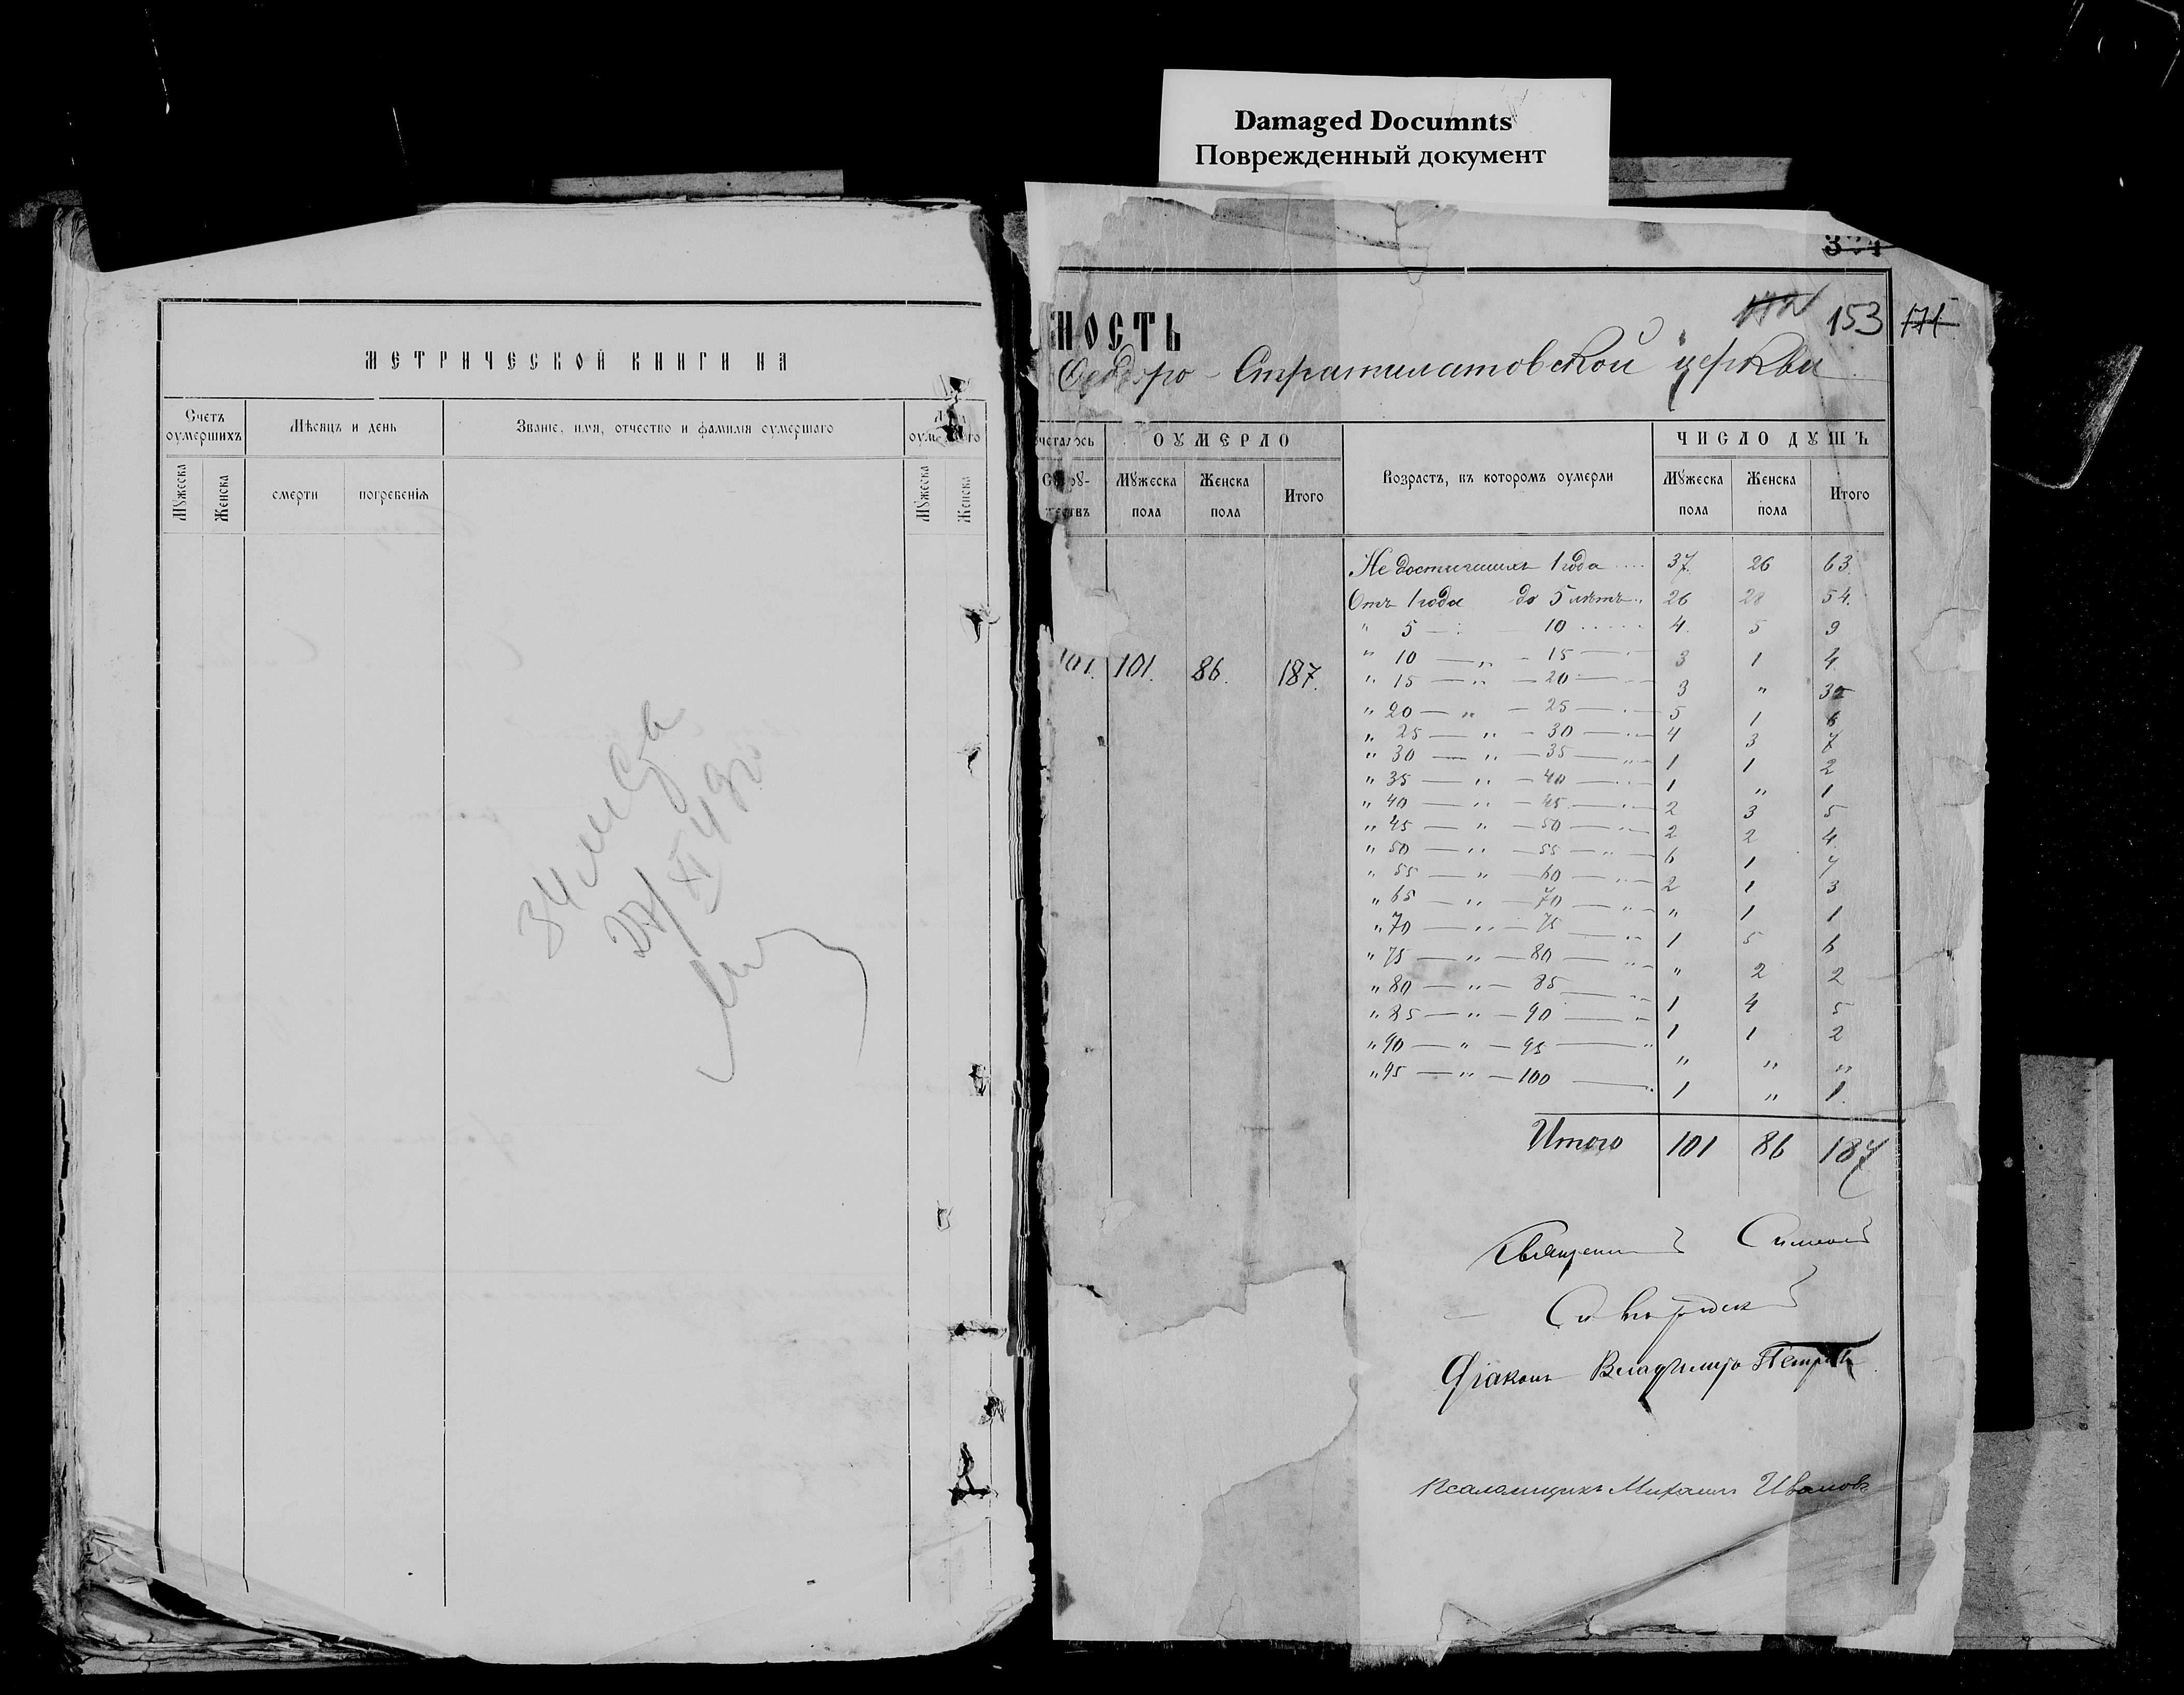 Damaged Documnts
Поврежденный документ
МЕТРИЧЕСКОЙ КНИГИ НА
Счетъ оумершихъ
Мѣсяцъ и день
Званіе, имя, отчество и фамилія оумершаго
Мужеска
Женска
смерти
погребенія
Мужеска
Женска
34
27/XI 49
153
МОСТЬ
Феодоро-Стратилатовской церкви
ОУМЕРЛО
Возрастъ, въ которомъ оумерли
ЧИСЛО ДУШЪ
Мужеска пола
Женска пола
Итого
Мужеска пола
Женска пола
Итого
101. 101. 86. 187.
Не достигшихъ 1 года .... 37. 26 63
Отъ 1 года до 5 лѣтъ .. 26 28 54.
" 5 — " — 10 4. 5 9
" 10 — " — 15 3 1 4
" 15 — " — 20 3 " 3
" 20 — " — 25 5 1 6
" 25 — " — 30 4 3 7
" 30 — " — 35 1 1 2
" 35 — " — 40 1 " 1
" 40 — " — 45 2 3 5
" 45 — " — 50 2 2 4
" 50 — " — 55 6 1 7
" 55 — " — 60 2 1 3
" 65 — " — 70 " 1 1
" 70 — " — 75 1 5 6
" 75 — " — 80 " 2 2
" 80 — " — 85 1 4 5
" 85 — " — 90 1 1 2
" 90 — " — 95 " " "
" 95 — " — 100 1 " 1.
Итого 101 86 187
Священникъ Симеонъ
Діаконъ Владиміръ Петровъ
Псаломщикъ Михаилъ Ивановъ